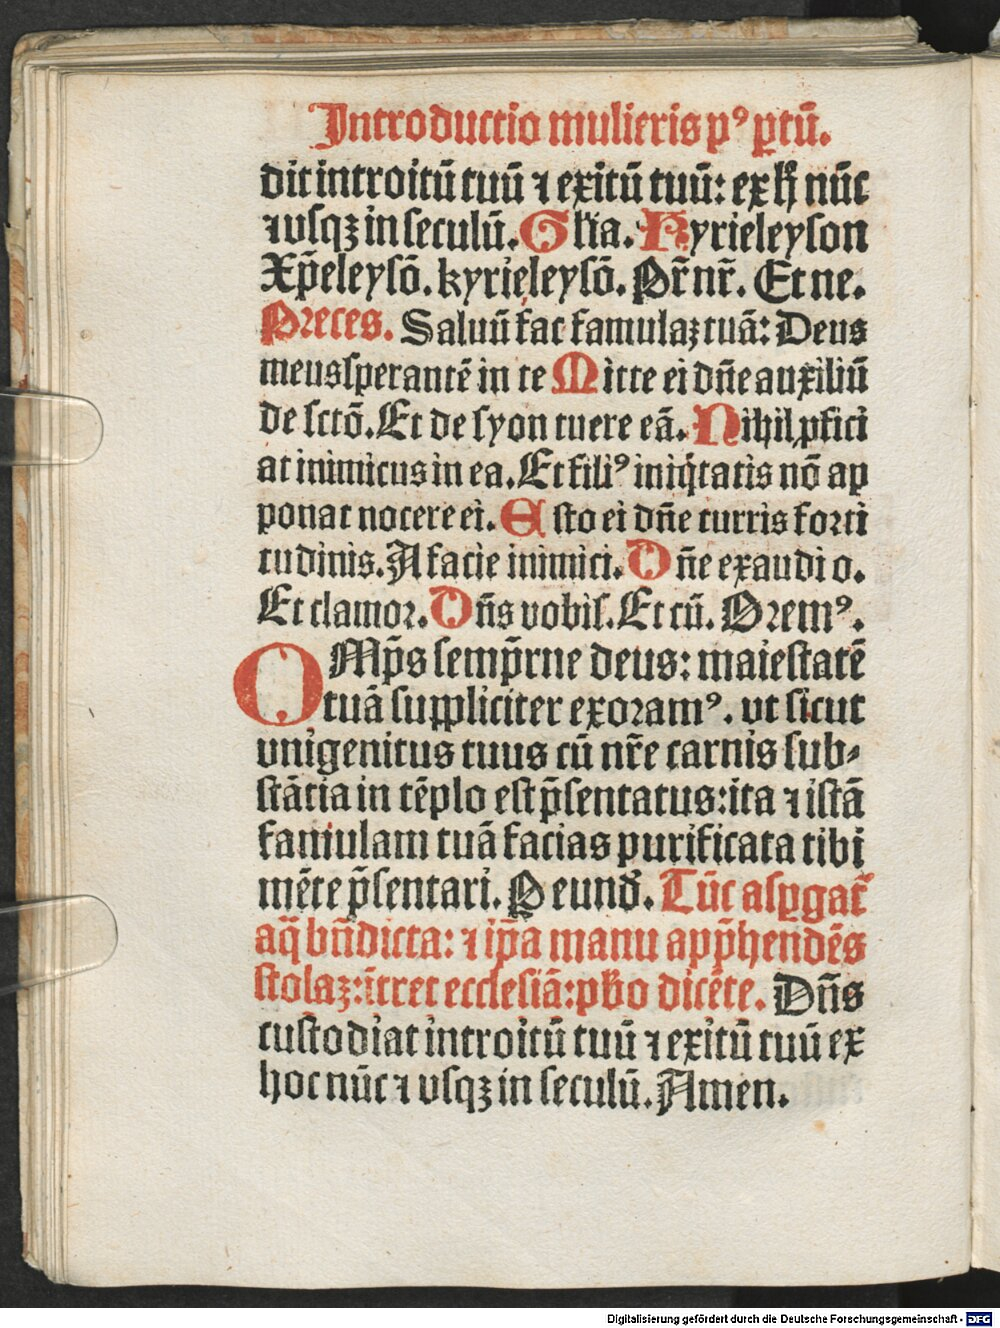 Introductio mulieris pꝰ ptū.
dit introitū tuū ⁊ exitū tuū: ex h̄ nūc
⁊ vsqꝫ in seculū. Gl̄ia. Kyrieleyson
Xp̄eleysō. kyrieleysō. Pr̄ nr̄. Et ne.
Preces. Saluū fac famulaꝫ tuā: Deus
meus sperantē in te Mitte ei dn̄e auxiliū
de sctō. Et de syon tuere eā. Nihil ꝓfici
at inimicus in ea. Et filiꝰ iniq̇tatis nō ap
ponat nocere ei. Esto ei dn̄e turris forti
tudinis. A facie inimici. Dn̄e exaudi o.
Et clamor. Dn̄s vobis. Et cū. Oremꝰ.
OMp̄s semp̄rne deus: maiestatē
tuā suppliciter exoramꝰ. vt sicut
vnigenitus tuus cū nr̄e carnis sub⸗
stātia in tēplo est p̄sentatus: ita ⁊ istā
famulam tuā facias purificata tibi
mēte p̄sentari. Peund̄. Tūc aspgat̄
aq̄ bn̄dicta: ⁊ ip̄a manu app̄hendēs
stolaꝫ: ītret ecclesiā: pb̄o dicēte. Dn̄s
custodiat introitū tuū ⁊ exitū tuū ex
hoc nūc ⁊ vsqꝫ in seculū. Amen.
Digitalisierung gefördert durch die Deutsche Forschungsgemeinschaft - DFG